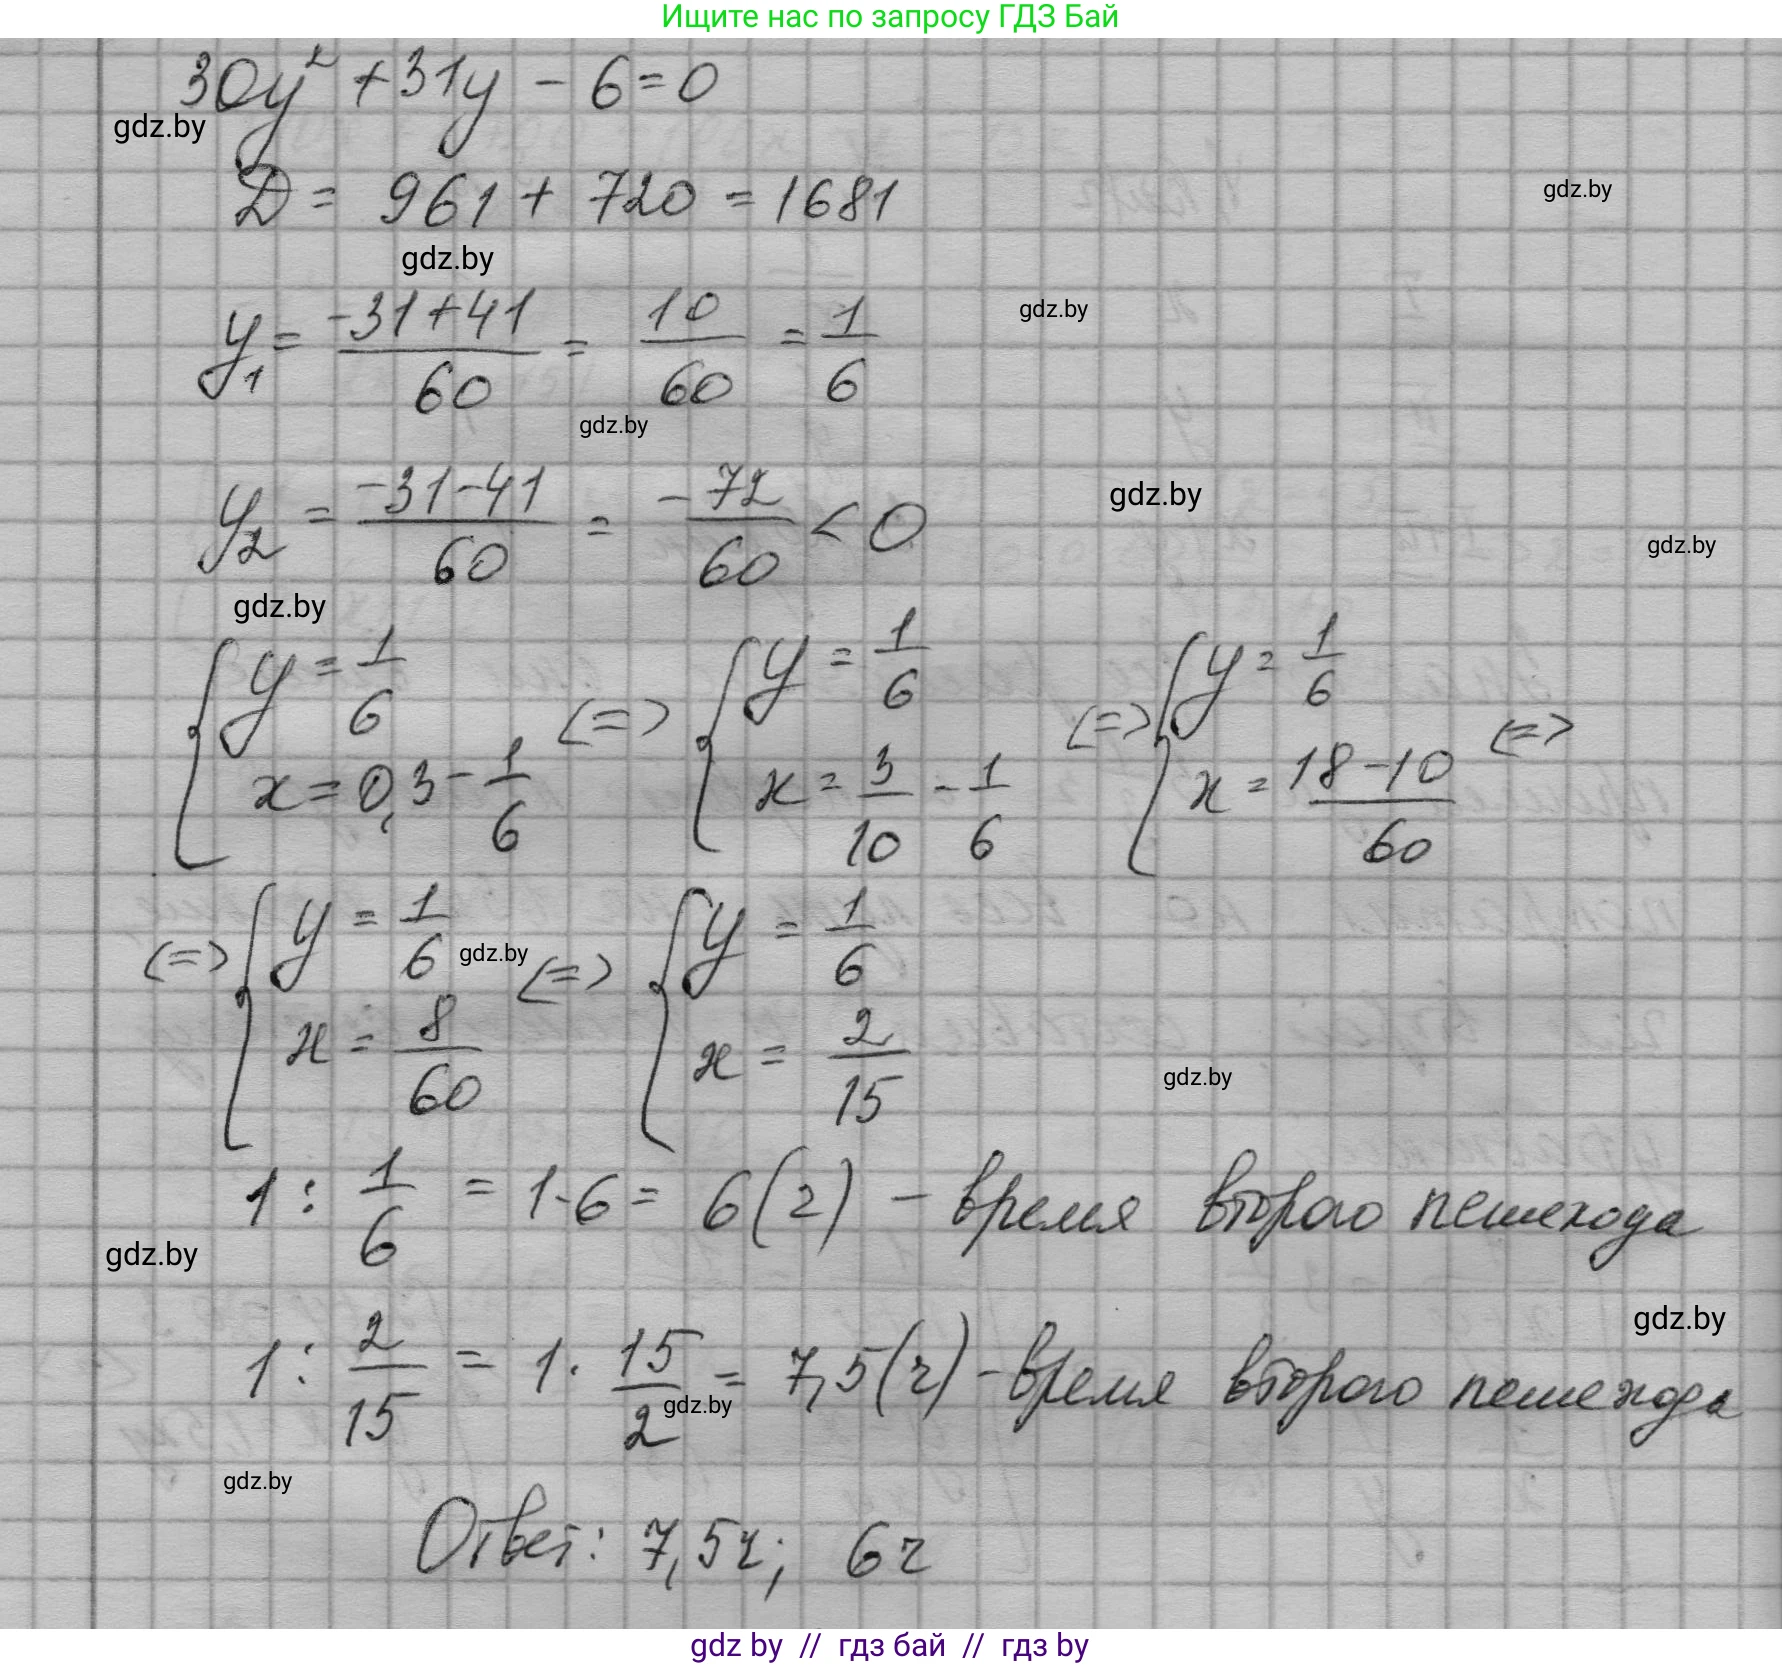 Ищите нас по запросу ГДЗ Бай
30y² + 31y - 6 = 0
gdz.by
D = 961 + 720 = 1681
gdz.by
gdz.by
gdz.by
y₁ = (-31+41)/60 = 10/60 = 1/6
gdz.by
y₂ = (-31-41)/60 = -72/60 < 0
gdz.by
gdz.by
gdz.by
{ y = 1/6 <=> { y = 1/6 <=> { y = 1/6 <=>
x = 0,3 - 1/6 x = 3/10 - 1/6 x = (18-10)/60
<=> { y = 1/6 gdz.by <=> { y = 1/6
x = 8/60 x = 2/15
gdz.by
1 : 1/6 = 1·6 = 6(ч) – время второго пешехода
gdz.by
gdz.by
1 : 2/15 = 1 · 15/2 = 7,5(ч) – время второго пешехода
gdz.by
gdz.by
Ответ: 7,5ч; 6ч
gdz by // гдз бай // гдз by